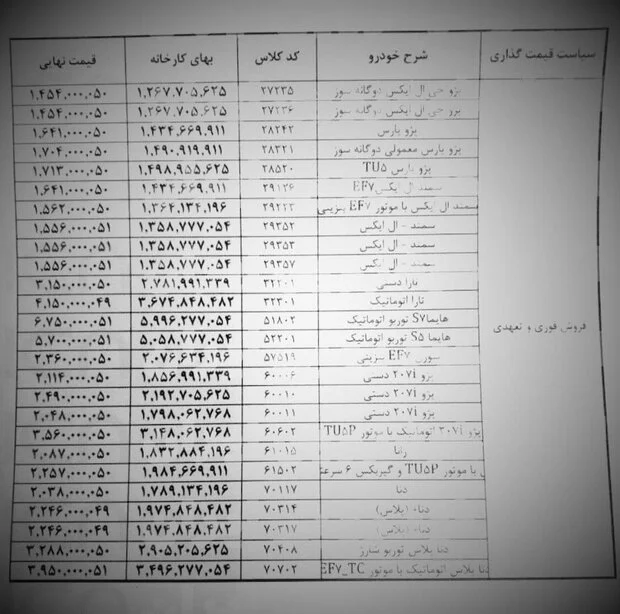 سیاست قیمت گذاری شرح خودرو کد کلاس بهای کارخانه قیمت نهایی
فروش فوری و تعهدی
پژو جی ال ایکس دوگانه سوز ۲۷۲۳۵ ۱,۲۶۷,۷۰۵,۶۲۵ ۱,۴۵۴,۰۰۰,۰۵۰
پژو جی ال ایکس دوگانه سوز ۲۷۲۳۶ ۱,۲۶۷,۷۰۵,۶۲۵ ۱,۴۵۴,۰۰۰,۰۵۰
پژو پارس ۲۸۲۴۲ ۱,۴۳۴,۶۶۹,۹۱۱ ۱,۶۴۱,۰۰۰,۰۵۰
پژو پارس معمولی دوگانه سوز ۲۸۳۲۱ ۱,۴۹۰,۹۱۹,۹۱۱ ۱,۷۰۴,۰۰۰,۰۵۰
پژو پارس TU۵ ۲۸۵۲۰ ۱,۴۹۸,۹۵۵,۶۲۵ ۱,۷۱۳,۰۰۰,۰۵۰
سمند ال ایکس EF۷ ۲۹۱۲۶ ۱,۴۳۴,۶۶۹,۹۱۱ ۱,۶۴۱,۰۰۰,۰۵۰
سمند ال ایکس با موتور EF۷ بنزینی ۲۹۲۲۳ ۱,۳۶۴,۱۳۴,۱۹۶ ۱,۵۶۲,۰۰۰,۰۵۰
سمند - ال ایکس ۲۹۳۵۲ ۱,۳۵۸,۷۷۷,۰۵۴ ۱,۵۵۶,۰۰۰,۰۵۱
سمند - ال ایکس ۲۹۳۵۳ ۱,۳۵۸,۷۷۷,۰۵۴ ۱,۵۵۶,۰۰۰,۰۵۱
سمند - ال ایکس ۲۹۳۵۷ ۱,۳۵۸,۷۷۷,۰۵۴ ۱,۵۵۶,۰۰۰,۰۵۱
تارا دستی ۳۲۲۰۱ ۲,۷۸۱,۹۹۱,۳۳۹ ۳,۱۵۰,۰۰۰,۰۵۰
تارا اتوماتیک ۳۲۳۰۱ ۳,۶۷۴,۸۴۸,۴۸۲ ۴,۱۵۰,۰۰۰,۰۴۹
هایما S۷ توربو اتوماتیک ۵۱۸۰۲ ۵,۹۹۶,۲۷۷,۰۵۴ ۶,۷۵۰,۰۰۰,۰۵۱
هایما S۵ توربو اتوماتیک ۵۲۲۰۱ ۵,۰۵۸,۷۷۷,۰۵۴ ۵,۷۰۰,۰۰۰,۰۵۱
سورن EF۷ بنزینی ۵۷۵۱۹ ۲,۰۷۶,۶۳۴,۱۹۶ ۲,۳۶۰,۰۰۰,۰۵۰
پژو ۲۰۷i دستی ۶۰۰۰۶ ۱,۸۵۶,۹۹۱,۳۳۹ ۲,۱۱۴,۰۰۰,۰۵۰
پژو ۲۰۷i دستی ۶۰۰۱۰ ۲,۱۹۲,۷۰۵,۶۲۵ ۲,۴۹۰,۰۰۰,۰۵۰
پژو ۲۰۷i دستی ۶۰۰۱۱ ۱,۷۹۸,۰۶۲,۷۶۸ ۲,۰۴۸,۰۰۰,۰۵۰
پژو ۲۰۷i اتوماتیک با موتور TU۵P ۶۰۶۰۲ ۳,۱۴۸,۰۶۲,۷۶۸ ۳,۵۶۰,۰۰۰,۰۵۰
رانا ۶۱۰۱۵ ۱,۸۳۲,۸۸۴,۱۹۶ ۲,۰۸۷,۰۰۰,۰۵۰
با موتور TU۵P و گیربکس ۶ سرعته ۶۱۵۰۲ ۱,۹۸۴,۶۶۹,۹۱۱ ۲,۲۵۷,۰۰۰,۰۵۰
دنا ۷۰۱۱۷ ۱,۷۸۹,۱۳۴,۱۹۶ ۲,۰۳۸,۰۰۰,۰۵۰
دنا+ (پلاس) ۷۰۳۱۴ ۱,۹۷۴,۸۴۸,۴۸۲ ۲,۲۴۶,۰۰۰,۰۴۹
دنا+ (پلاس) ۷۰۳۱۷ ۱,۹۷۴,۸۴۸,۴۸۲ ۲,۲۴۶,۰۰۰,۰۴۹
دنا پلاس توربو شارژ ۷۰۴۰۸ ۲,۹۰۵,۲۰۵,۶۲۵ ۳,۲۸۸,۰۰۰,۰۵۰
دنا پلاس اتوماتیک با موتور EF۷_TC ۷۰۷۰۲ ۳,۴۹۶,۲۷۷,۰۵۴ ۳,۹۵۰,۰۰۰,۰۵۱